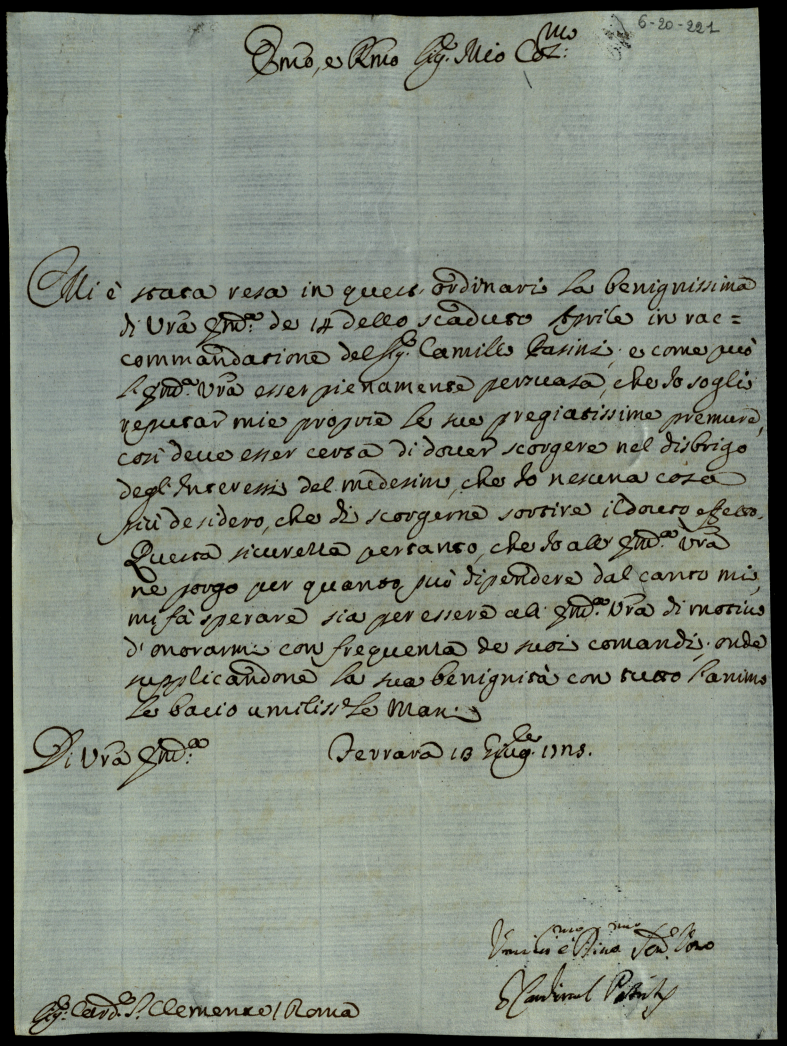 6-20-221
Emõ, e Rmo Sig.r Mio Col:mo
Mi è stata resa in quest' ordinari la benignissima
di Vrã Emz.a de 14 dello scaduto Aprile in rac=
commandatione del Sig.r Camillo Pasini; e come può
l'Emz.a Vrã esser pienamente persuasa, che Io soglio
reputar mie proprie le sue pregiatissime premure,
così deve esser certa di dover scorgere nel disbrigo
degl'Interessi del medesimo, che Io nessuna cosa
più desidero, che di scorgerne sortire il douto effetto.
Questa sicurezza pertanto, che Io all' Emz.a Vrã
ne porgo per quanto può dipendere dal canto mio,
mi fà sperare sia per essere all' Emz.a Vrã di motivo
d'onorarmi con frequenza de suoi comandi; onde
supplicandone la sua benignità con tutto l'animo
Le bacio umiliss.e le Mani.
Di Vrã Emz.a Ferrara 13
Umilis.mo e Div.mo Ser.e Vero
Il Cardinal Patrizi
Sig.r Card.e S. Clemente / Roma